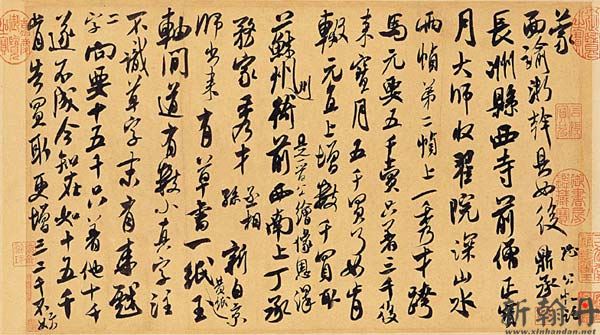 蒙
面諭浙幹具如後
長洲縣西寺前僧正寶
月大師收翟院深山水
兩幀第二幀上一秀才跨
馬元要五千賣只著三千後
來寶月五千買了如肯
輟元直上增數千買取
蘇州州衙前西南上丁承
務家秀才 新自京
師出來有草書一紙黃紙玉
軸間道有數小真字注
不識草字末有來戲
二字向要十五千只著他十千
遂不成今知在如十五千
肯告買取更增三二千不妨
新翰丹
www.xinhandan.net